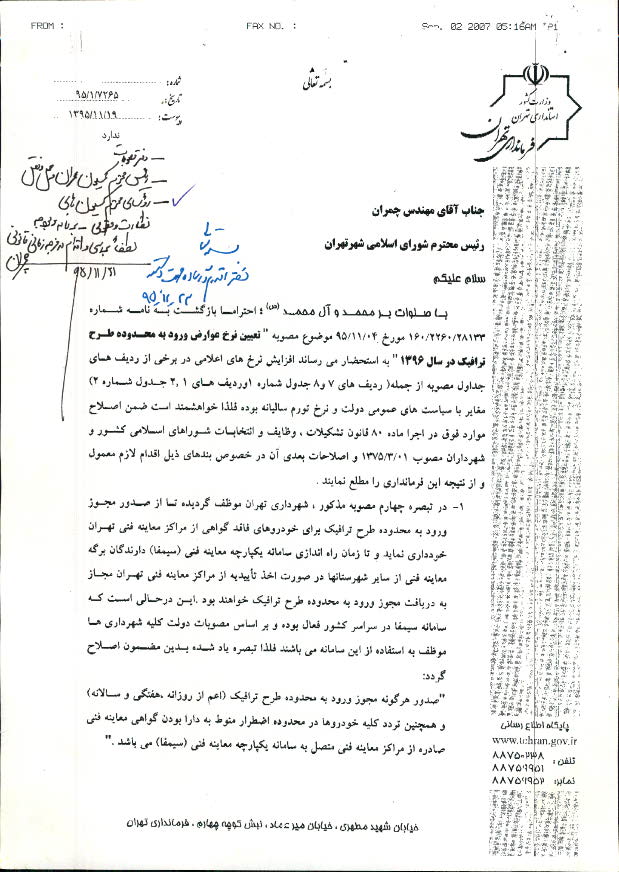 FROM :    FAX NO. :    Sep. 02 2007 05:16AM P1
بسمه تعالی
وزارت کشور
استانداری تهران
فرمانداری تهران
شماره: ۹۵/۱/۷۲۶۵
تاریخ: ۱۳۹۵/۱۱/۱۹
پیوست: ندارد
۹۵/۱۱/۲۱
جناب آقای مهندس چمران
رئیس محترم شورای اسلامی شهرتهران
سلام علیکم
با صلوات بر محمد و آل محمد (ص) ؛ احتراما بازگشت به نامه شماره
۱۶۰/۲۲۶۰/۲۸۱۳۳ مورخ ۹۵/۱۱/۰۴ موضوع مصوبه " تعیین نرخ عوارض ورود به محدوده طرح
ترافیک در سال ۱۳۹۶ " به استحضار می رساند افزایش نرخ های اعلامی در برخی از ردیف های
جداول مصوبه از جمله( ردیف های ۷ و۸ جدول شماره ۱وردیف های ۳,۱ جدول شماره ۲)
مغایر با سیاست های عمومی دولت و نرخ تورم سالیانه بوده فلذا خواهشمند است ضمن اصلاح
موارد فوق در اجرا ماده ۸۰ قانون تشکیلات ، وظایف و انتخابات شوراهای اسلامی کشور و
شهرداران مصوب ۱۳۷۵/۳/۰۱ و اصلاحات بعدی آن در خصوص بندهای ذیل اقدام لازم معمول
و از نتیجه این فرمانداری را مطلع نمایند .
۱- در تبصره چهارم مصوبه مذکور ، شهرداری تهران موظف گردیده تا از صدور مجوز
ورود به محدوده طرح ترافیک برای خودروهای فاقد گواهی از مراکز معاینه فنی تهران
خودداری نماید و تا زمان راه اندازی سامانه یکپارچه معاینه فنی (سیمفا) دارندگان برگه
معاینه فنی از سایر شهرستانها در صورت اخذ تأییدیه از مراکز معاینه فنی تهران مجاز
به دریافت مجوز ورود به محدوده طرح ترافیک خواهند بود .این درحالی است که
سامانه سیمفا در سراسر کشور فعال بوده و بر اساس مصوبات دولت کلیه شهرداری ها
موظف به استفاده از این سامانه می باشند فلذا تبصره یاد شده بدین مضمون اصلاح
گردد:
"صدور هرگونه مجوز ورود به محدوده طرح ترافیک (اعم از روزانه ،هفتگی و سالانه)
و همچنین تردد کلیه خودروها در محدوده اضطرار منوط به دارا بودن گواهی معاینه فنی
صادره از مراکز معاینه فنی متصل به سامانه یکپارچه معاینه فنی (سیمفا) می باشد ."
پایگاه اطلاع رسانی
www.tehran.gov.ir
تلفن : ۸۸۷۵۰۲۳۸
۸۸۷۵۶۹۵۱
نمابر: ۸۸۷۵۶۹۵۲
خیابان شهید مطهری ، خیابان میرعماد ، نبش کوچه چهارم ، فرمانداری تهران